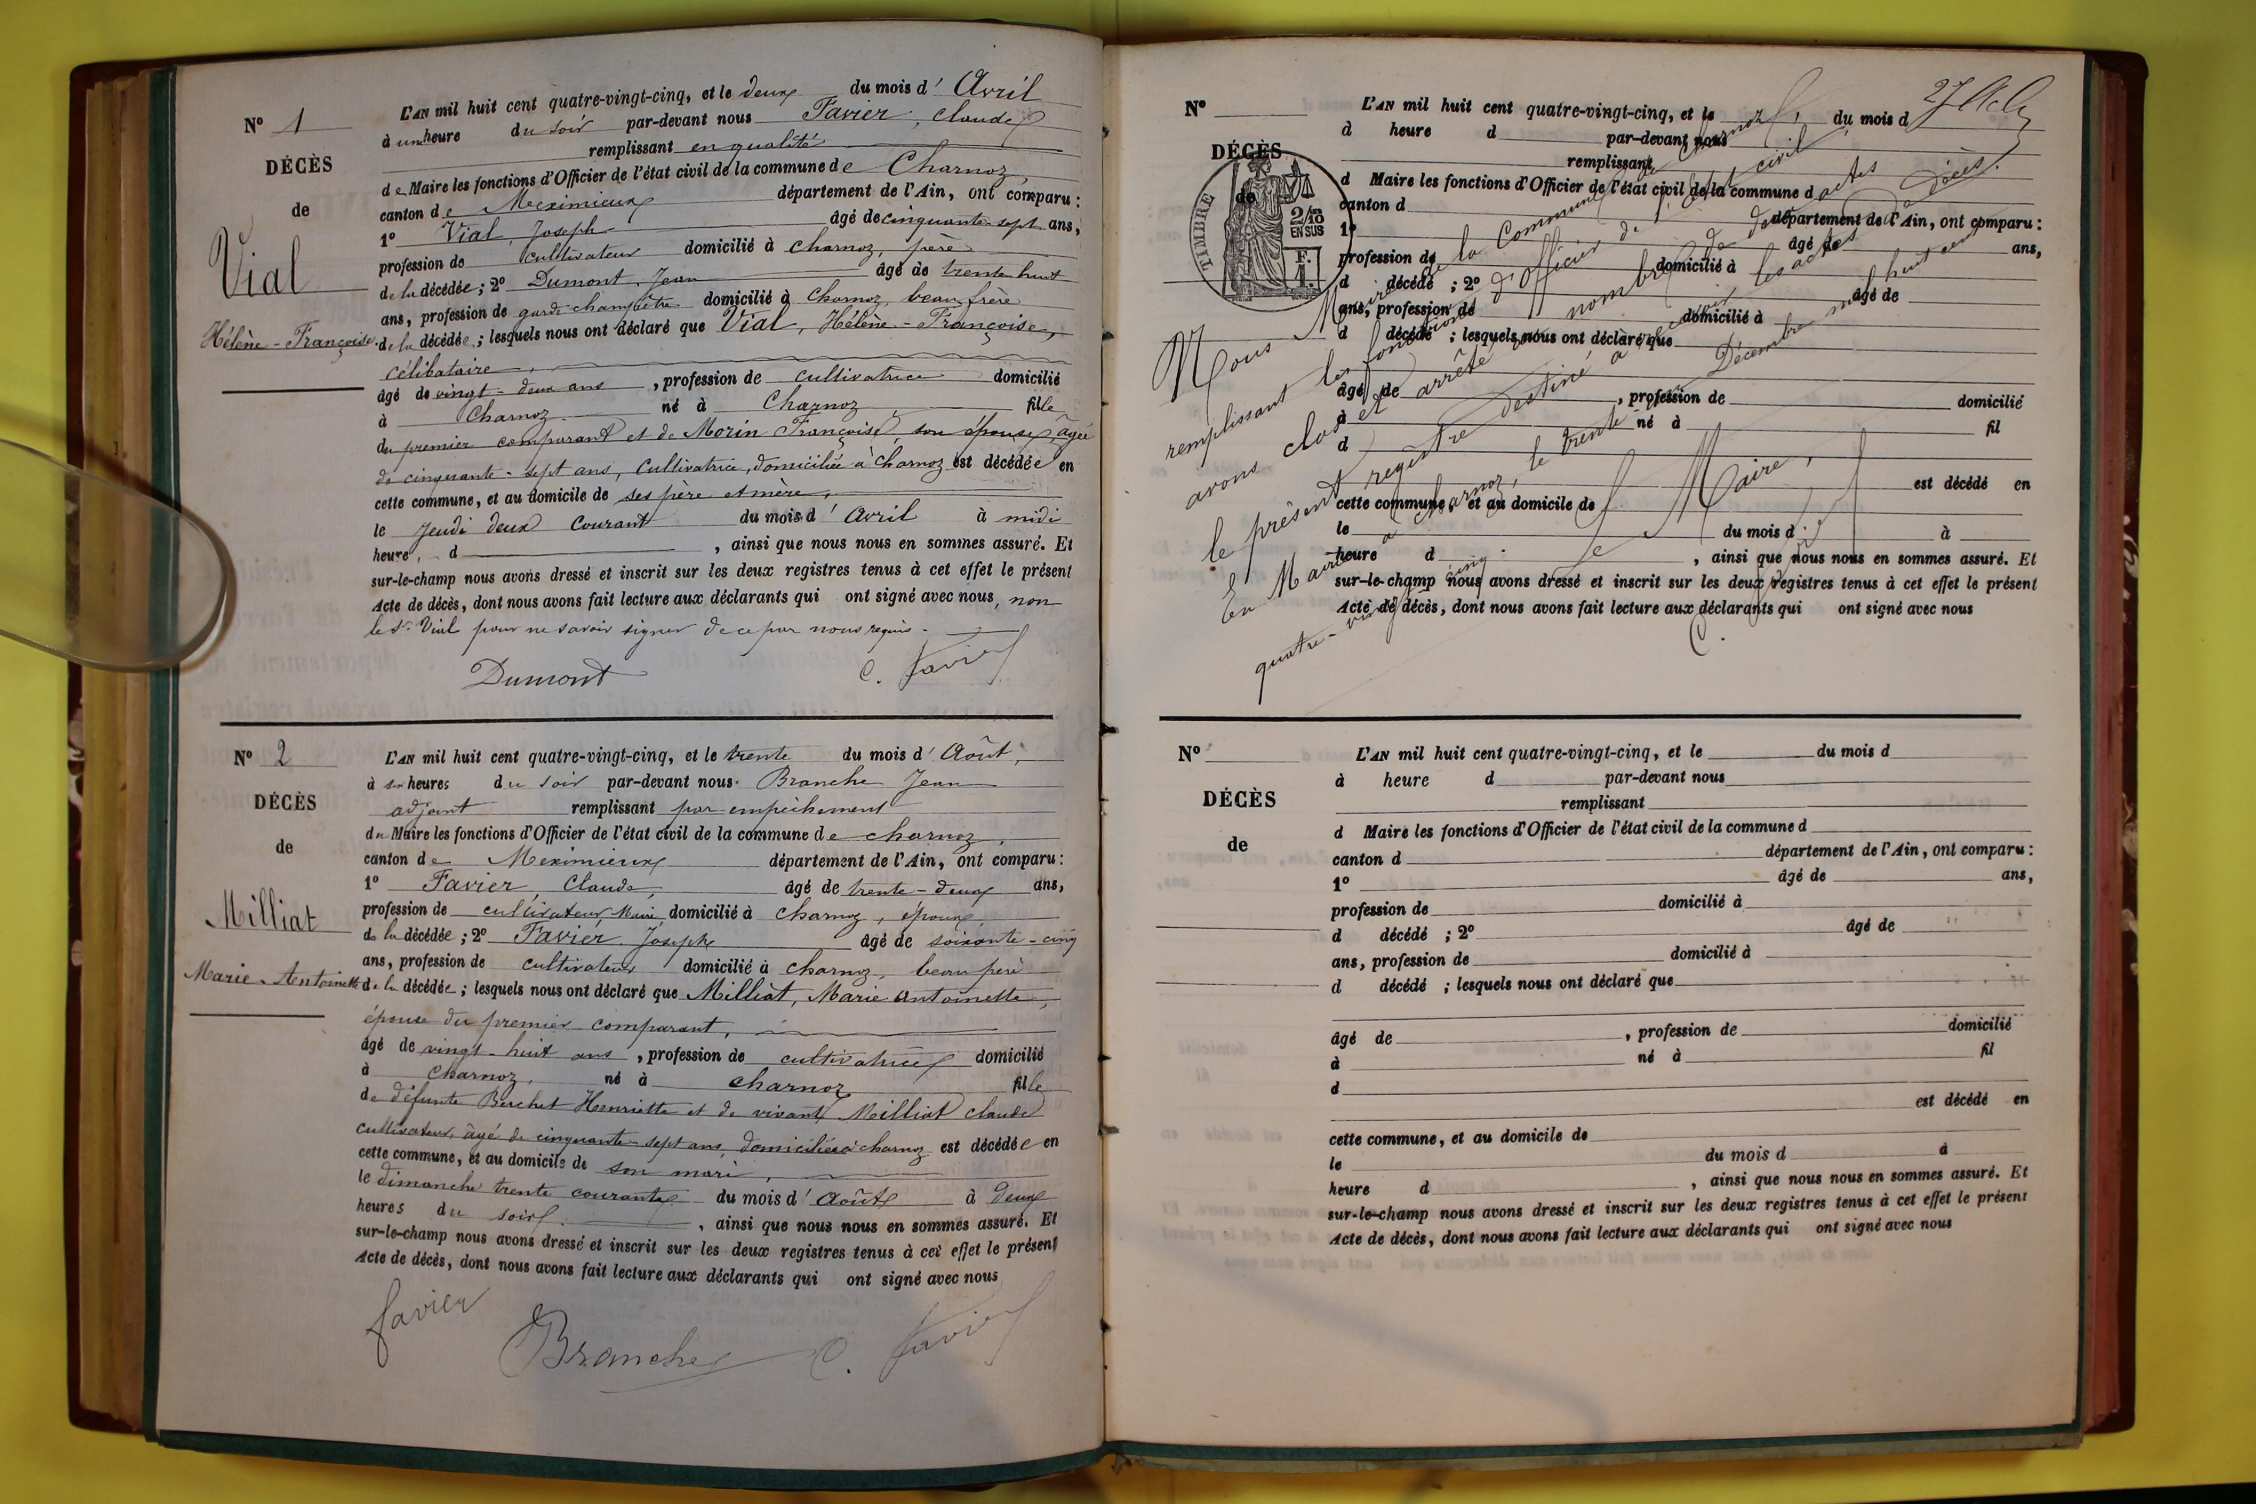 L'AN mil huit cent quatre-vingt-cinq, et le deux du mois d' Avril
N° 1
à une heure du soir par-devant nous Favier, Claude
remplissant en qualité
DÉCÈS
de Maire les fonctions d'Officier de l'état civil de la commune de Charnoz,
canton de Meximieux département de l'Ain, ont comparu :
de
1° Vial, Joseph âgé de cinquante-sept ans,
profession de cultivateur domicilié à Charnoz, père
Vial
de la décédée ; 2° Dumont, Jean âgé de trente huit
ans, profession de garde champêtre domicilié à Charnoz, beau frère
Hélène-Françoise.
de la décédée ; lesquels nous ont déclaré que Vial, Hélène-Françoise,
célibataire,
âgé de vingt-deux ans, profession de cultivatrice domicilié
à Charnoz né à Charnoz fille
du premier comparant et de Morin Françoise, son épouse, âgée
de cinquante-sept ans, cultivatrice, domiciliée à Charnoz est décédée en
cette commune, et au domicile de ses père et mère,
le jeudi deux courant du mois d' Avril à midi
heure, d , ainsi que nous nous en sommes assuré. Et
sur-le-champ nous avons dressé et inscrit sur les deux registres tenus à cet effet le présent
Acte de décès, dont nous avons fait lecture aux déclarants qui ont signé avec nous, non
le Sr. Vial pour ne savoir signer de ce par nous requis.
Dumont C. Favier
N° 2
L'AN mil huit cent quatre-vingt-cinq, et le trente du mois d' Août,
à six heures du soir par-devant nous Branche Jean
DÉCÈS
adjoint remplissant par empêchement
du Maire les fonctions d'Officier de l'état civil de la commune de Charnoz,
de
canton de Meximieux département de l'Ain, ont comparu :
1° Favier, Claude, âgé de trente-deux ans,
Milliat
profession de cultivateur, Maire domicilié à Charnoz, époux
de la décédée ; 2° Favier Joseph âgé de soixante-cinq
ans, profession de cultivateur domicilié à Charnoz, beau père
Marie-Antoinette
de la décédée ; lesquels nous ont déclaré que Milliat, Marie Antoinette,
épouse du premier comparant,
âgé de vingt-huit ans, profession de cultivatrice domicilié
à Charnoz, né à Charnoz fille
de défunte Berchet Henriette et de vivant Milliat Claude
cultivateur, âgé de cinquante-sept ans, domicilié à Charnoz est décédée en
cette commune, et au domicile de son mari,
le dimanche trente courant du mois d' Août à deux
heures du soir. , ainsi que nous nous en sommes assuré. Et
sur-le-champ nous avons dressé et inscrit sur les deux registres tenus à cet effet le présent
Acte de décès, dont nous avons fait lecture aux déclarants qui ont signé avec nous
favier Branche C. Favier
N°
L'AN mil huit cent quatre-vingt-cinq, et le du mois d
à heure d par-devant nous
DÉCÈS
remplissant
d Maire les fonctions d'Officier de l'état civil de la commune d
de
canton d département de l'Ain, ont comparu :
TIMBRE
2/10 EN SUS
F. 1.
1° âgé de ans,
profession de domicilié à
d décédé ; 2° âgé de
ans, profession de domicilié à
d décédé ; lesquels nous ont déclaré que
âgé de , profession de domicilié
à né à fil
d
est décédé en
cette commune, et au domicile de
le du mois d à
heure d , ainsi que nous nous en sommes assuré. Et
sur-le-champ nous avons dressé et inscrit sur les deux registres tenus à cet effet le présent
Acte de décès, dont nous avons fait lecture aux déclarants qui ont signé avec nous
Nous Maire de la Commune de Charnoz,
remplissant les fonctions d'Officier de l'état civil,
avons clos et arrêté au nombre de deux actes
le présent registre destiné à recevoir les actes de décès.
En Mairie à Charnoz, le trente Décembre mil huit cent
quatre-vingt cinq.
Le Maire,
N°
L'AN mil huit cent quatre-vingt-cinq, et le du mois d
à heure d par-devant nous
DÉCÈS
remplissant
d Maire les fonctions d'Officier de l'état civil de la commune d
de
canton d département de l'Ain, ont comparu :
1° âgé de ans,
profession de domicilié à
d décédé ; 2° âgé de
ans, profession de domicilié à
d décédé ; lesquels nous ont déclaré que
âgé de , profession de domicilié
à né à fil
d
est décédé en
cette commune, et au domicile de
le du mois d à
heure d , ainsi que nous nous en sommes assuré. Et
sur-le-champ nous avons dressé et inscrit sur les deux registres tenus à cet effet le présent
Acte de décès, dont nous avons fait lecture aux déclarants qui ont signé avec nous